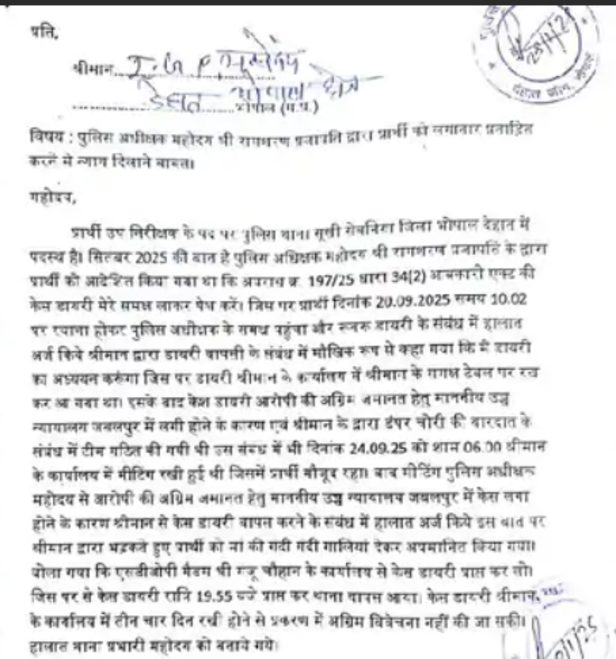 प्रति,
श्रीमान I.G.P महोदय
देहात भोपाल झोन
भोपाल (म.प्र.)
विषय : पुलिस अधीक्षक महोदय श्री रामशरण प्रजापति द्वारा प्रार्थी को लगातार प्रताड़ित
करने से न्याय दिलाने बाबत।
महोदय,
प्रार्थी उप निरीक्षक के पद पर पुलिस थाना सूखी सेवनिया जिला भोपाल देहात में
पदस्थ है। सितंबर 2025 की बात है पुलिस अधिक्षक महोदय श्री रामशरण प्रजापति के द्वारा
प्रार्थी को आदेशित किया गया था कि अपराध क्र. 197/25 धारा 34(2) आबकारी एक्ट की
केस डायरी मेरे समक्ष लाकर पेश करें। जिस पर प्रार्थी दिनांक 20.09.2025 समय 10.02
पर रवाना होकर पुलिस अधीक्षक के समक्ष पहुंचा और रूबरू डायरी के संबंध में हालात
अर्ज किये श्रीमान द्वारा डायरी वापसी के संबंध में मौखिक रूप से कहा गया कि मै डायरी
का अध्ययन करूंगा जिस पर डायरी श्रीमान के कार्यालय में श्रीमान के समक्ष टेबल पर रख
कर आ गया था। इसके बाद केश डायरी आरोपी की अग्रिम जमानत हेतु माननीय उच्च
न्यायालय जबलपुर में लगी होने के कारण एवं श्रीमान के द्वारा डंपर चोरी की वारदात के
संबंध में टीम गठित की गयी थी उस संबंध में भी दिनांक 24.09.25 को शाम 06.00 श्रीमान
के कार्यालय में मीटिंग रखी हुई थी जिसमें प्रार्थी मौजूद रहा। बाद मीटिंग पुलिस अधीक्षक
महोदय से आरोपी की अग्रिम जमानत हेतु माननीय उच्च न्यायालय जबलपुर में केस लगा
होने के कारण श्रीमान से केस डायरी वापस करने के संबंध में हालात अर्ज किये इस बात पर
श्रीमान द्वारा भड़कते हुए प्रार्थी को मां की गंदी गंदी गालियां देकर अपमानित किया गया।
बोला गया कि एसडीओपी मैडम श्री मंजू चौहान के कार्यालय से केस डायरी प्राप्त कर लो।
जिस पर से केस डायरी रात्रि 19.55 बजे प्राप्त कर थाना वापस आया। केस डायरी श्रीमान
के कार्यालय में तीन चार दिन रखी होने से प्रकरण में अग्रिम विवेचना नहीं की जा सकी।
हालात थाना प्रभारी महोदय को बताये गये।